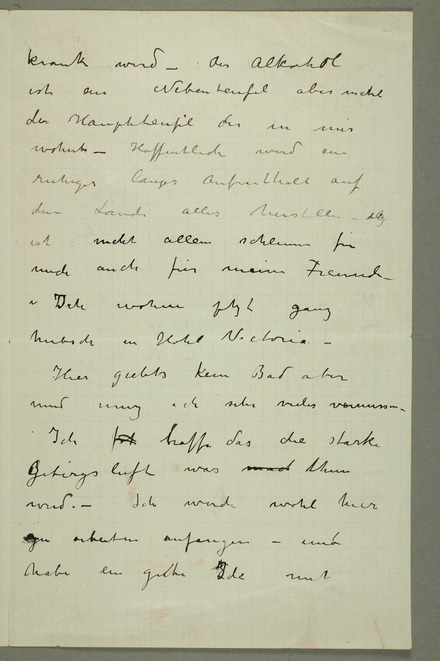 krank wird – der Alkohol
ist ein Nebenteufel aber nicht
der Hauptteufel der in mir
wohnt – Hoffentlich wird ein
ruhiger langer Aufenthalt auf
dem Lande alles herstellen –
ist nicht allein schlimm für
mich auch für meine Freunde
Ich wohne jetzt ganz
hübsch in Hotel Victoria –
Hier giebts kein Bad aber
und muss ich sehr vieles vermissen
Ich hoffe das die starke
Gebirgsluft was thun
wird. – Ich werde wohl hier
zu arbeiten anfangen – und
habe ein gute Ide mit